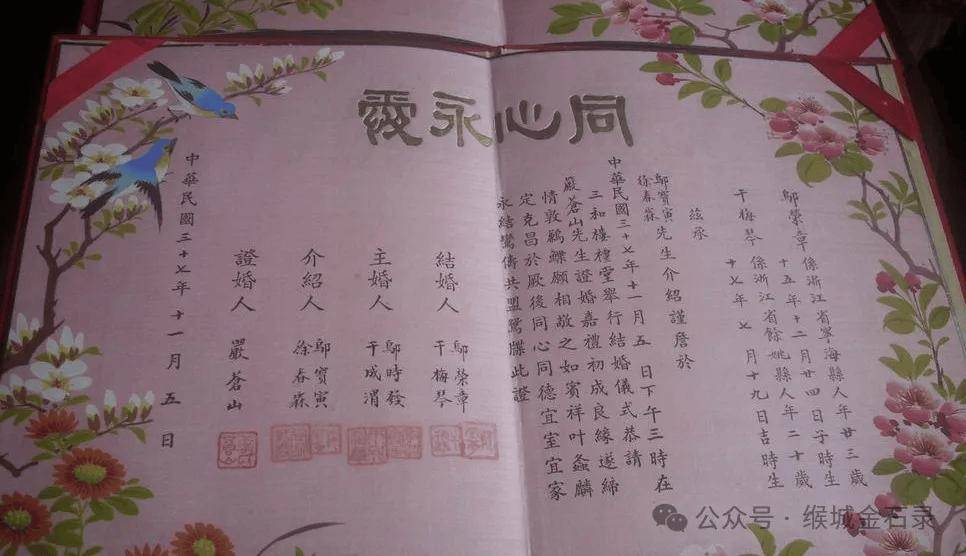 同心永愛
鄔榮章係浙江省寧海縣人年廿三歲
十五年十二月廿四日子時生
于梅琴係浙江省餘姚縣人年二十歲
十七年七月十九日吉時生
茲承
鄔寶寅
徐春霖先生介紹謹詹於
中華民國三十七年十一月五日下午三時在
三和樓禮堂舉行結婚儀式恭請
嚴蒼山先生證婚嘉禮初成良緣遂締
情敦鶼鰈願相敬之如賓祥叶螽麟
定克昌於厥後同心同德宜室宜家
永結鸞儔共盟鴛牒此證
結婚人 鄔榮章
于梅琴
主婚人 鄔時發
于成渭
介紹人 鄔寶寅
徐春霖
證婚人 嚴蒼山
中華民國三十七年十一月五日
公众号·缑城金石录